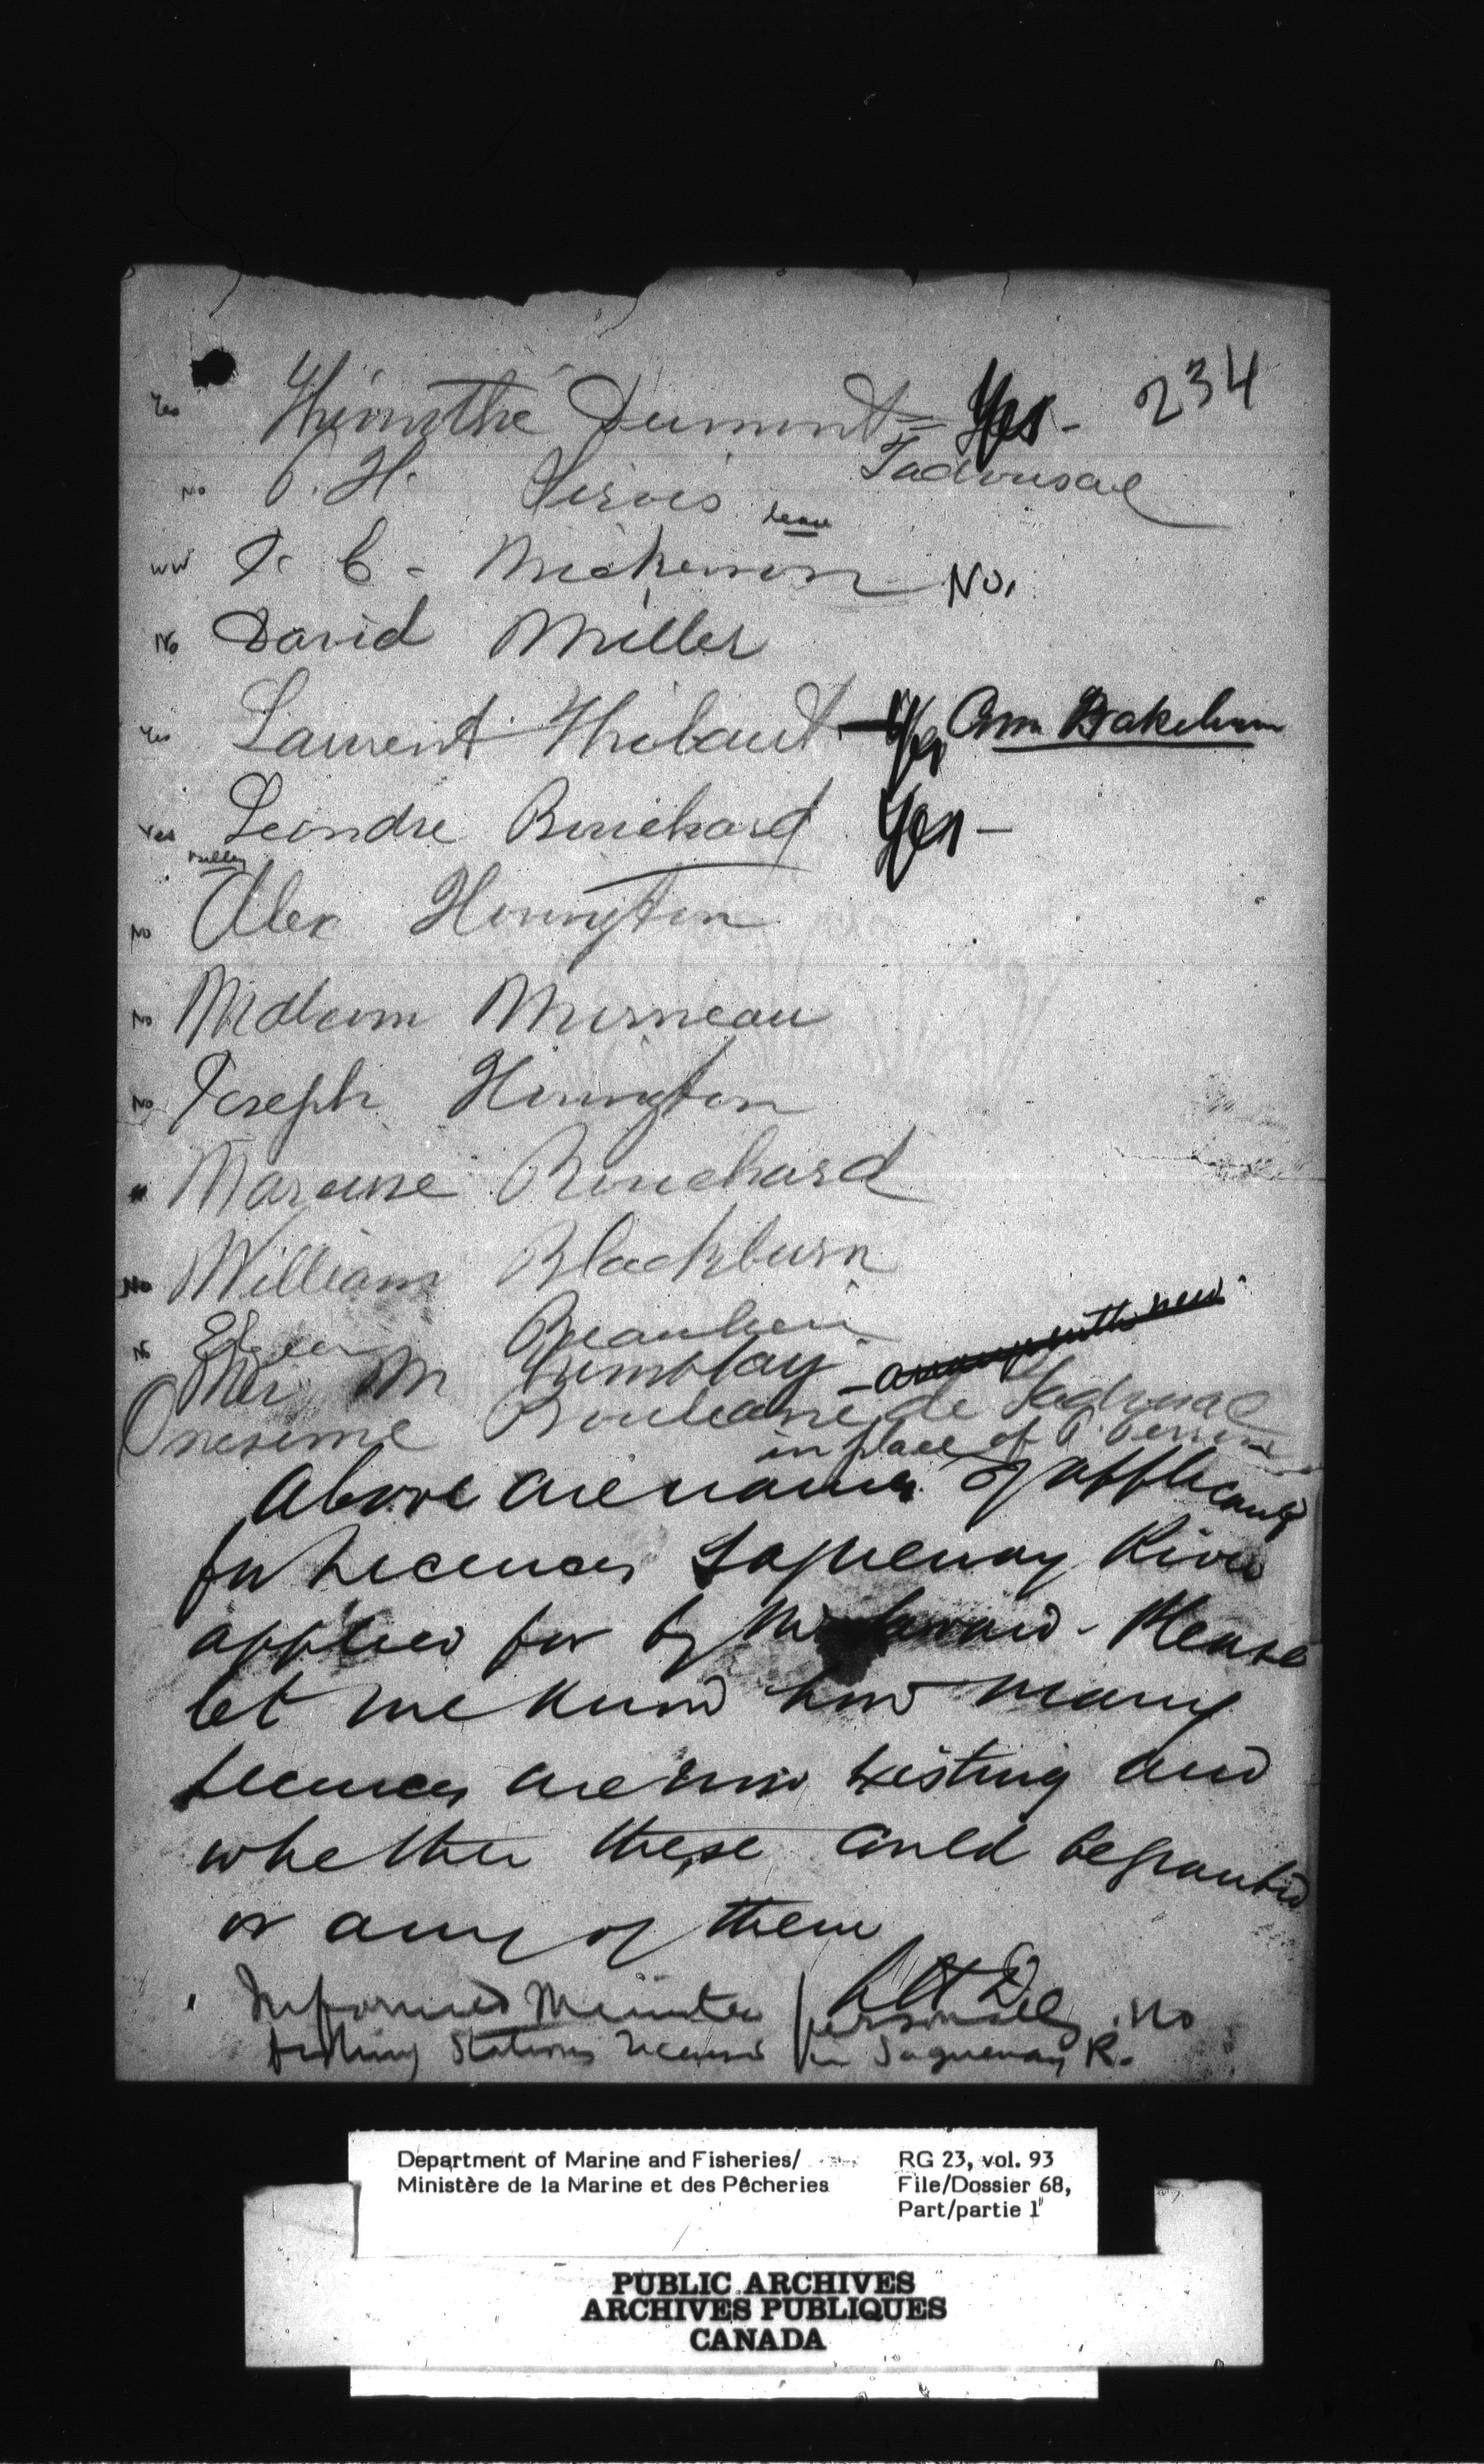 234
Yes Thimothé Dumont = Yes -
Tadousac
No P. H. Sirois
J. C. No.
No David Miller
Yes Laurent Thibault - Yes
Yes Leondre Bouchard Yes -
No Alex Hovington
No Morneau
No Joseph Hovington
Bouchard
No William Blackburn
No Beaulieu
M Tremblay
Onesime Bouliane de Tadousac
in place of P.
Above are names of applicants
for Licences Saguenay River
applied for by Mr Please
let me know how many
licences are now existing and
whether these could be granted
or any of them
Informed Minister personally no
fishing stations licensed in Saguenay R.
Department of Marine and Fisheries/
Ministère de la Marine et des Pêcheries
RG 23, vol. 93
File/Dossier 68,
Part/partie 1
PUBLIC ARCHIVES
ARCHIVES PUBLIQUES
CANADA